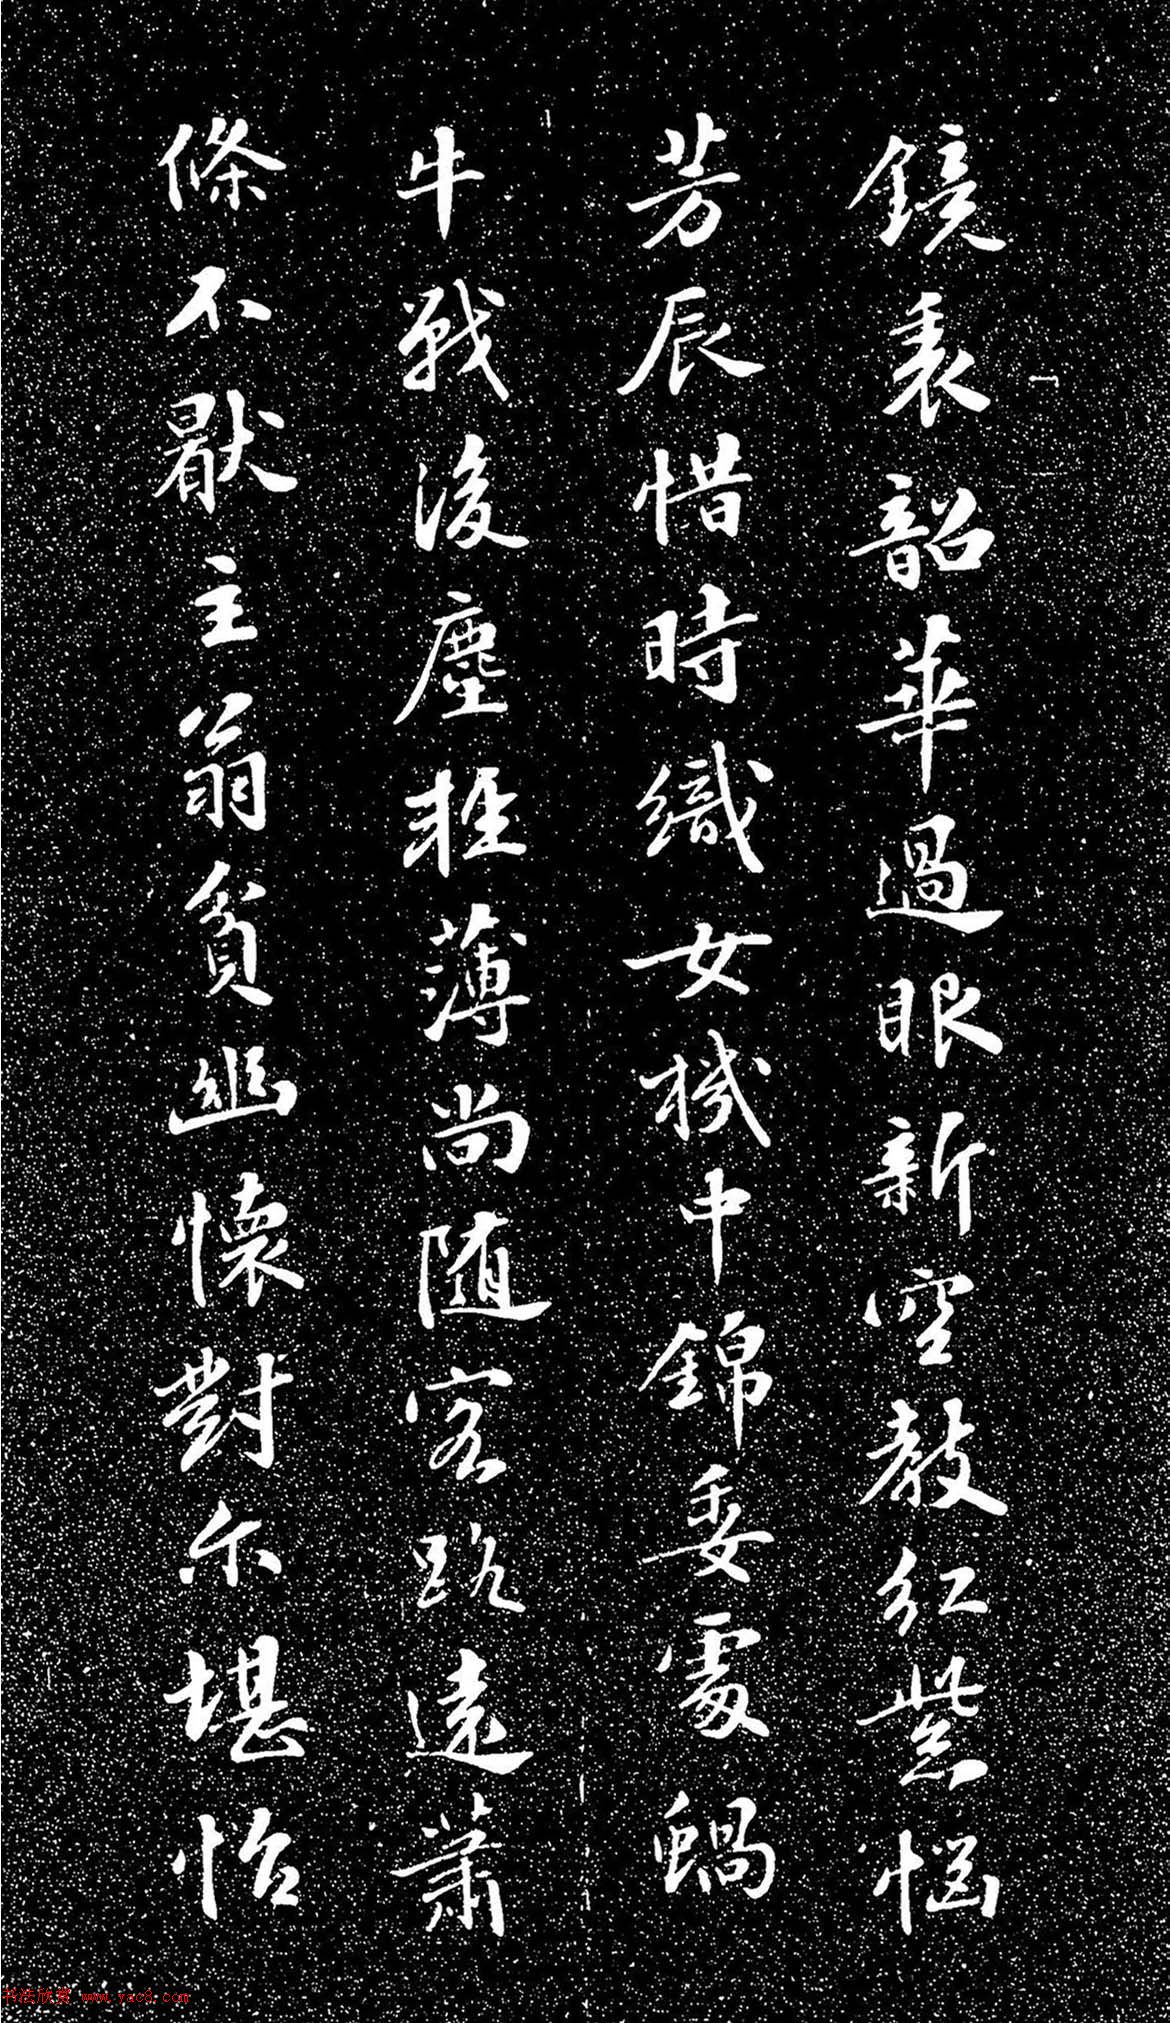 鏡裏韶華過眼新空教紅紫惱
芳辰惜時織女機中錦委處蝸
牛戰後塵雖薄尚随客路遠蕭
條不厭主翁貧幽懷對尔堪怡
书法欣赏 www.yac8.com